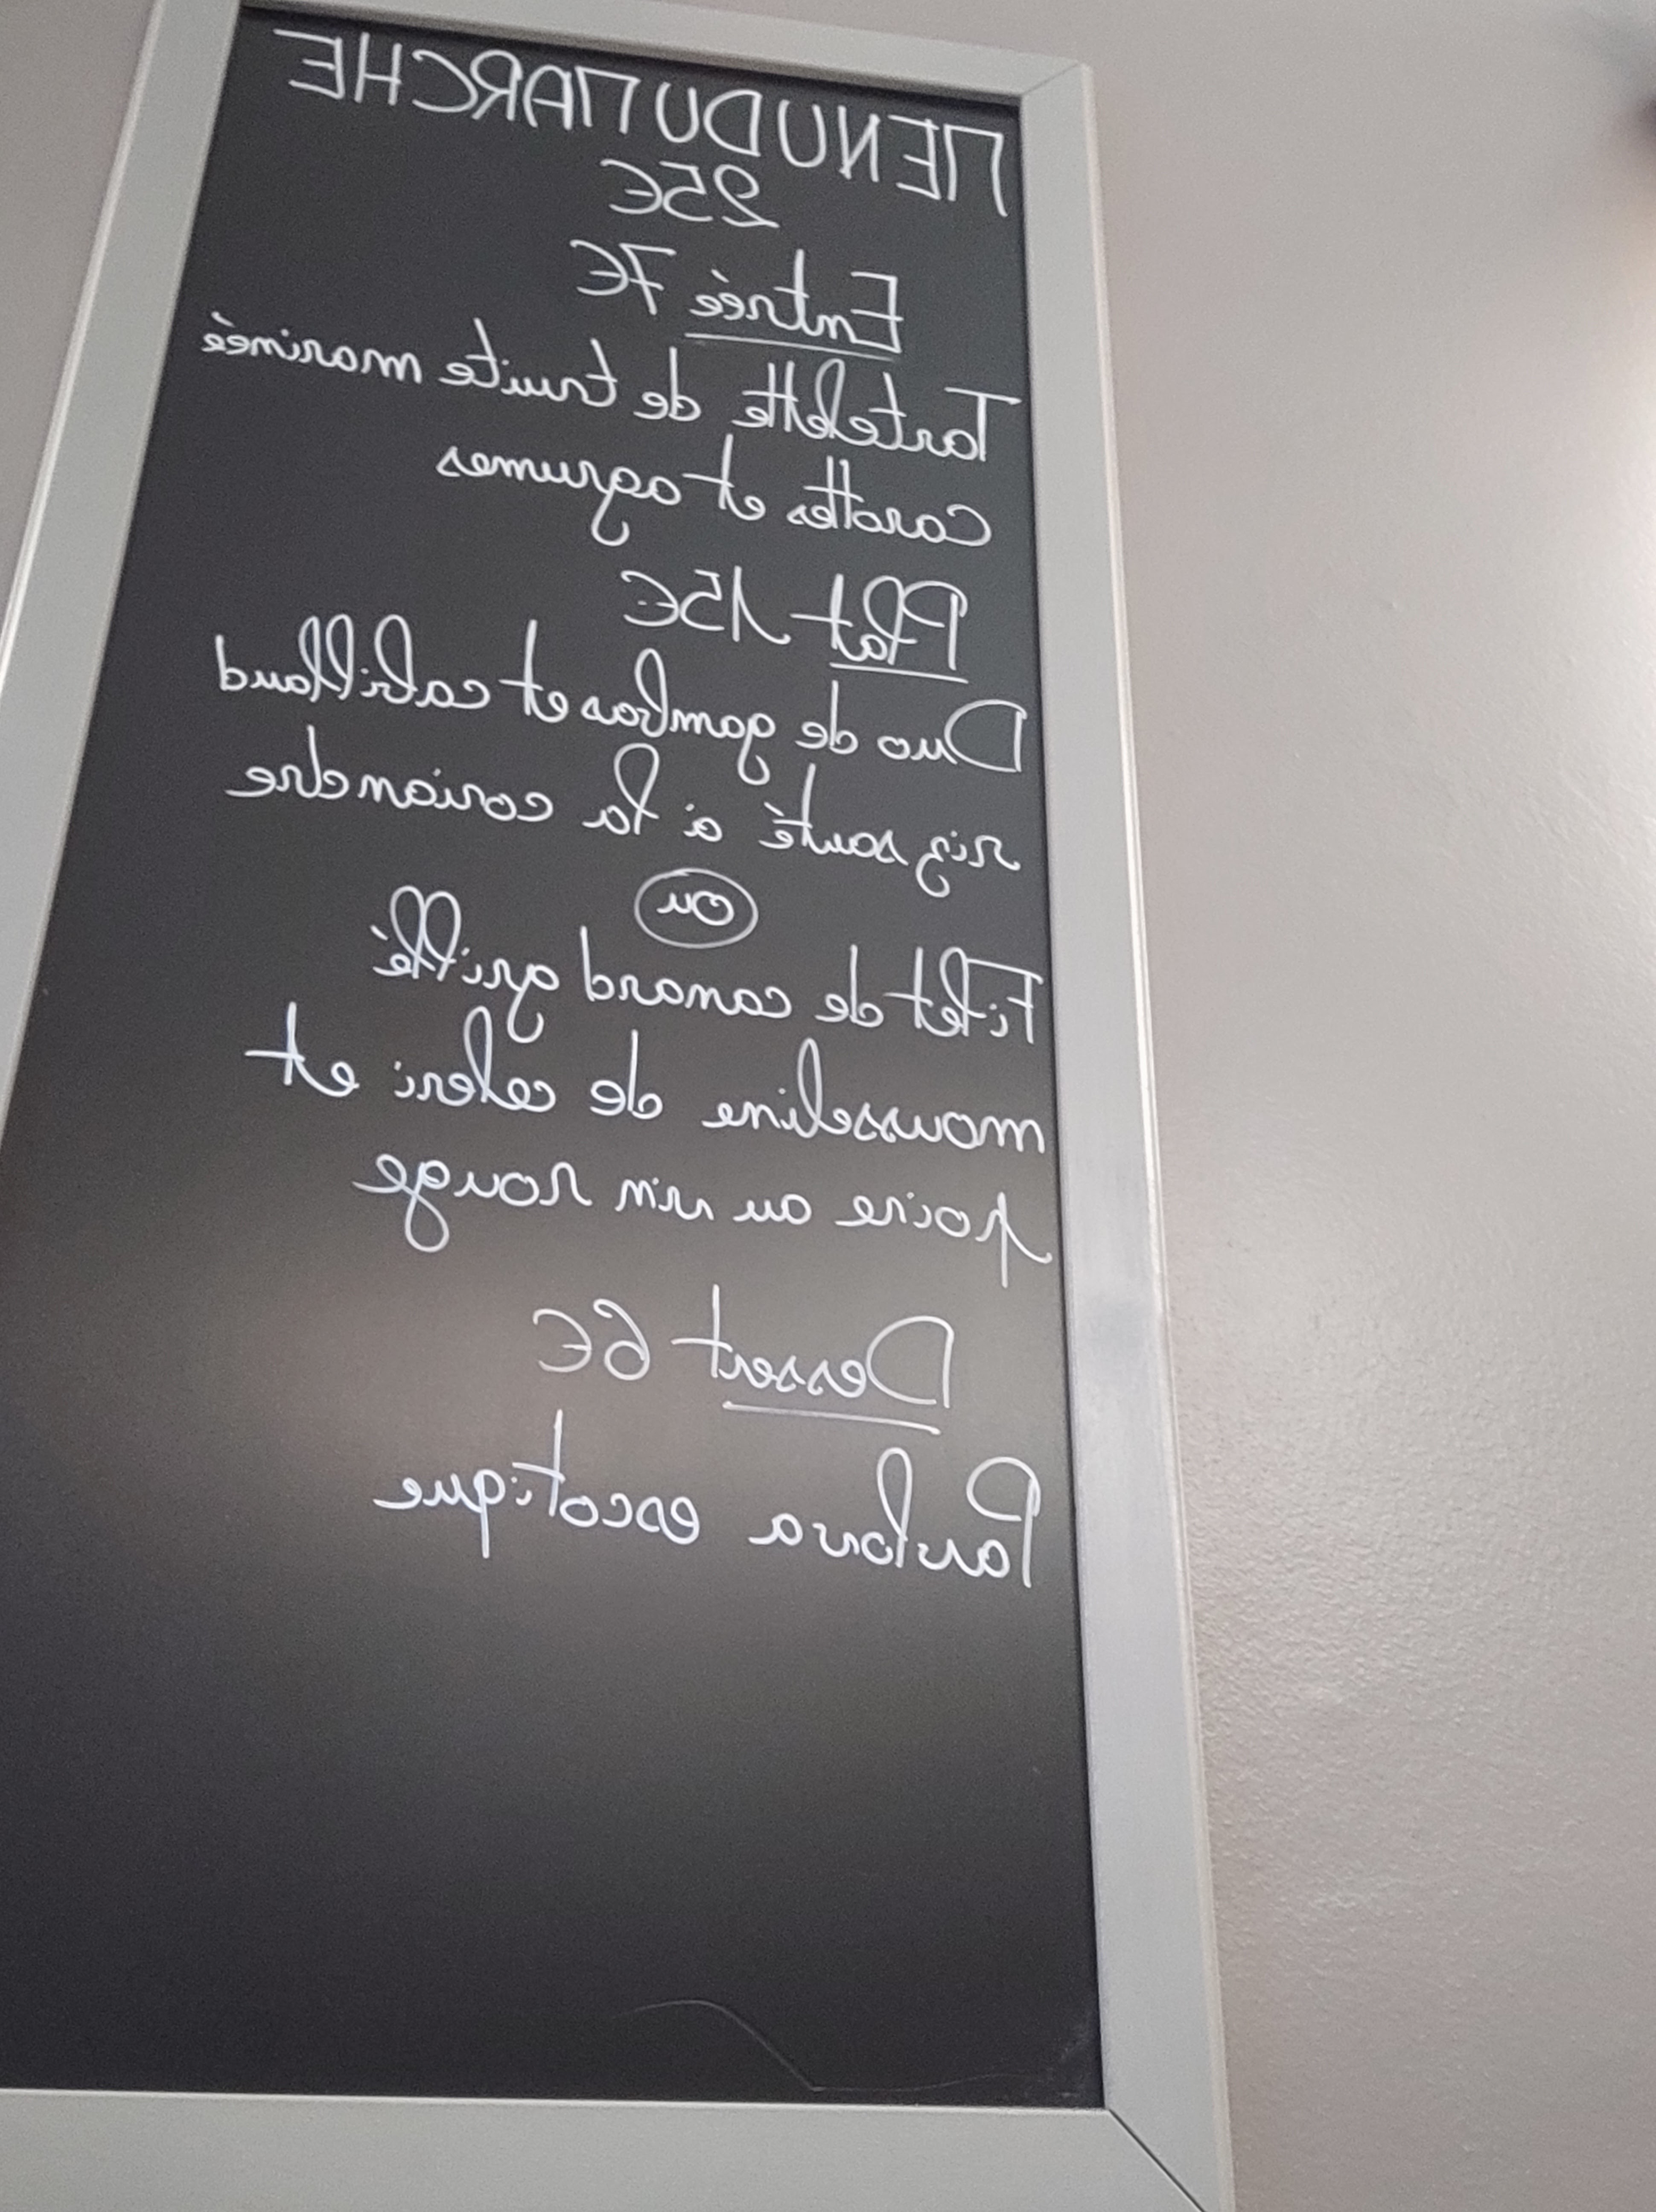 MENU DU MARCHE
25€
Entrée 7€
Tartelette de truite marinée
carottes et agrumes
Plat 15€
Duo de gambas et cabillaud
riz sauté a la coriandre
ou
Filet de canard grillé
mousseline de celeri et
poire au vin rouge
Dessert 6€
Pavlova exotique